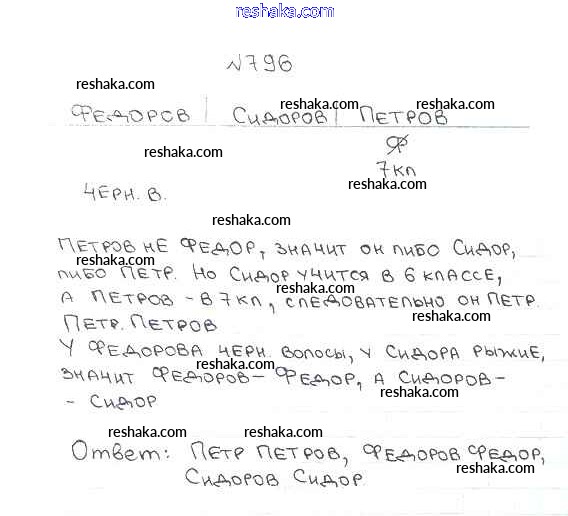 reshaka.com
№796
reshaka.com
reshaka.com reshaka.com
ФЕДОРОВ | СИДОРОВ | ПЕТРОВ
reshaka.com
7 КЛ
reshaka.com
ЧЕРН. В.
reshaka.com
ПЕТРОВ НЕ ФЕДОР, ЗНАЧИТ ОН ЛИБО СИДОР,
reshaka.com
ЛИБО ПЕТР. НО СИДОР УЧИТСЯ В 6 КЛАССЕ,
reshaka.com
А ПЕТРОВ - В 7 КЛ, СЛЕДОВАТЕЛЬНО ОН ПЕТР.
reshaka.com
ПЕТР. ПЕТРОВ
У ФЕДОРОВА ЧЕРН. ВОЛОСЫ, У СИДОРА РЫЖИЕ,
reshaka.com
ЗНАЧИТ ФЕДОРОВ - ФЕДОР, А СИДОРОВ -
reshaka.com
- СИДОР
reshaka.com reshaka.com
Ответ: ПЕТР ПЕТРОВ, ФЕДОРОВ ФЕДОР,
reshaka.com
СИДОРОВ СИДОР